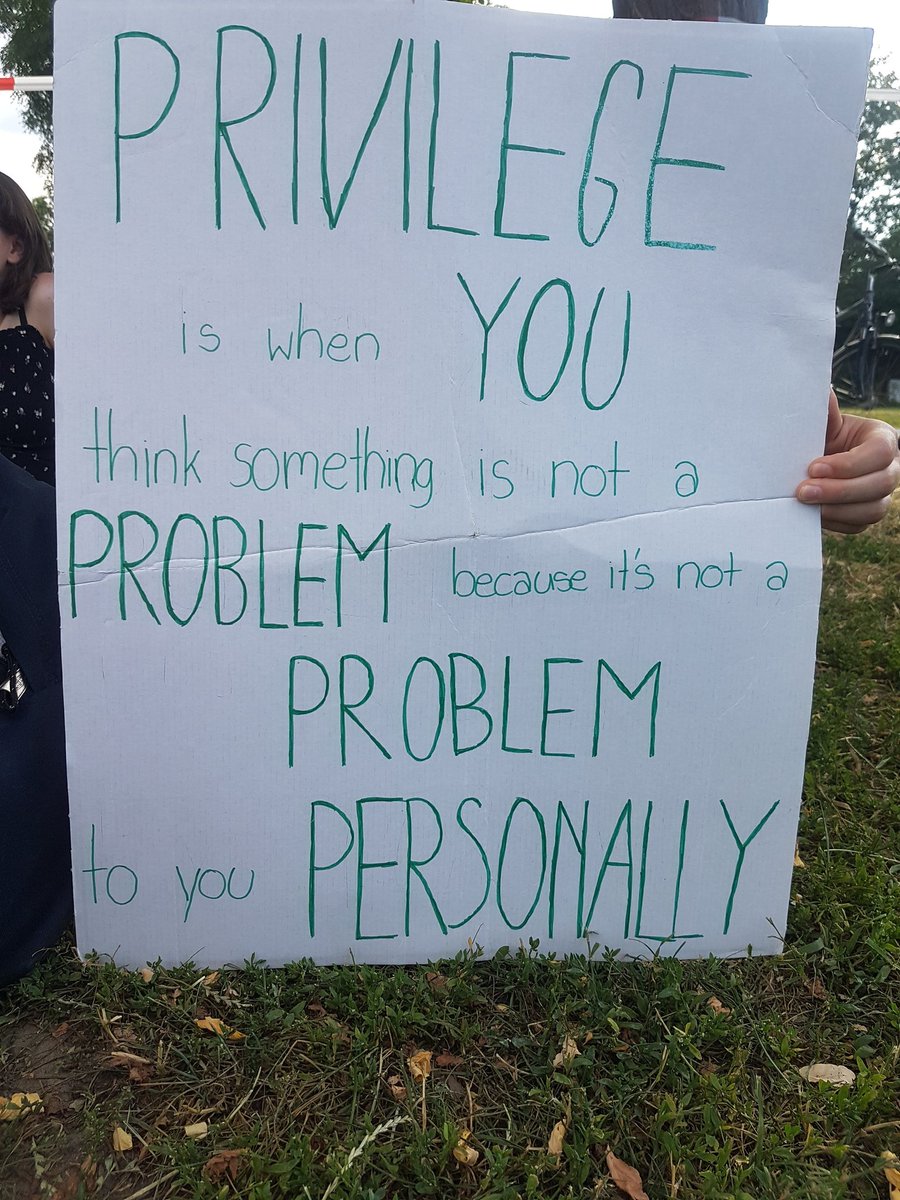 PRIVILEGE
is when YOU
think something is not a
PROBLEM because it's not a
PROBLEM
to you PERSONALLY